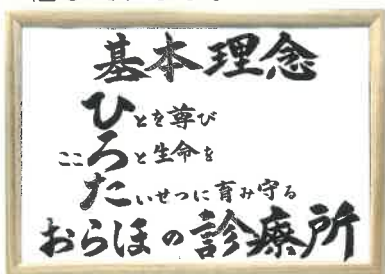 基本理念
ひとを尊び
こころと生命を
たいせつに育み守る
おらほの診療所